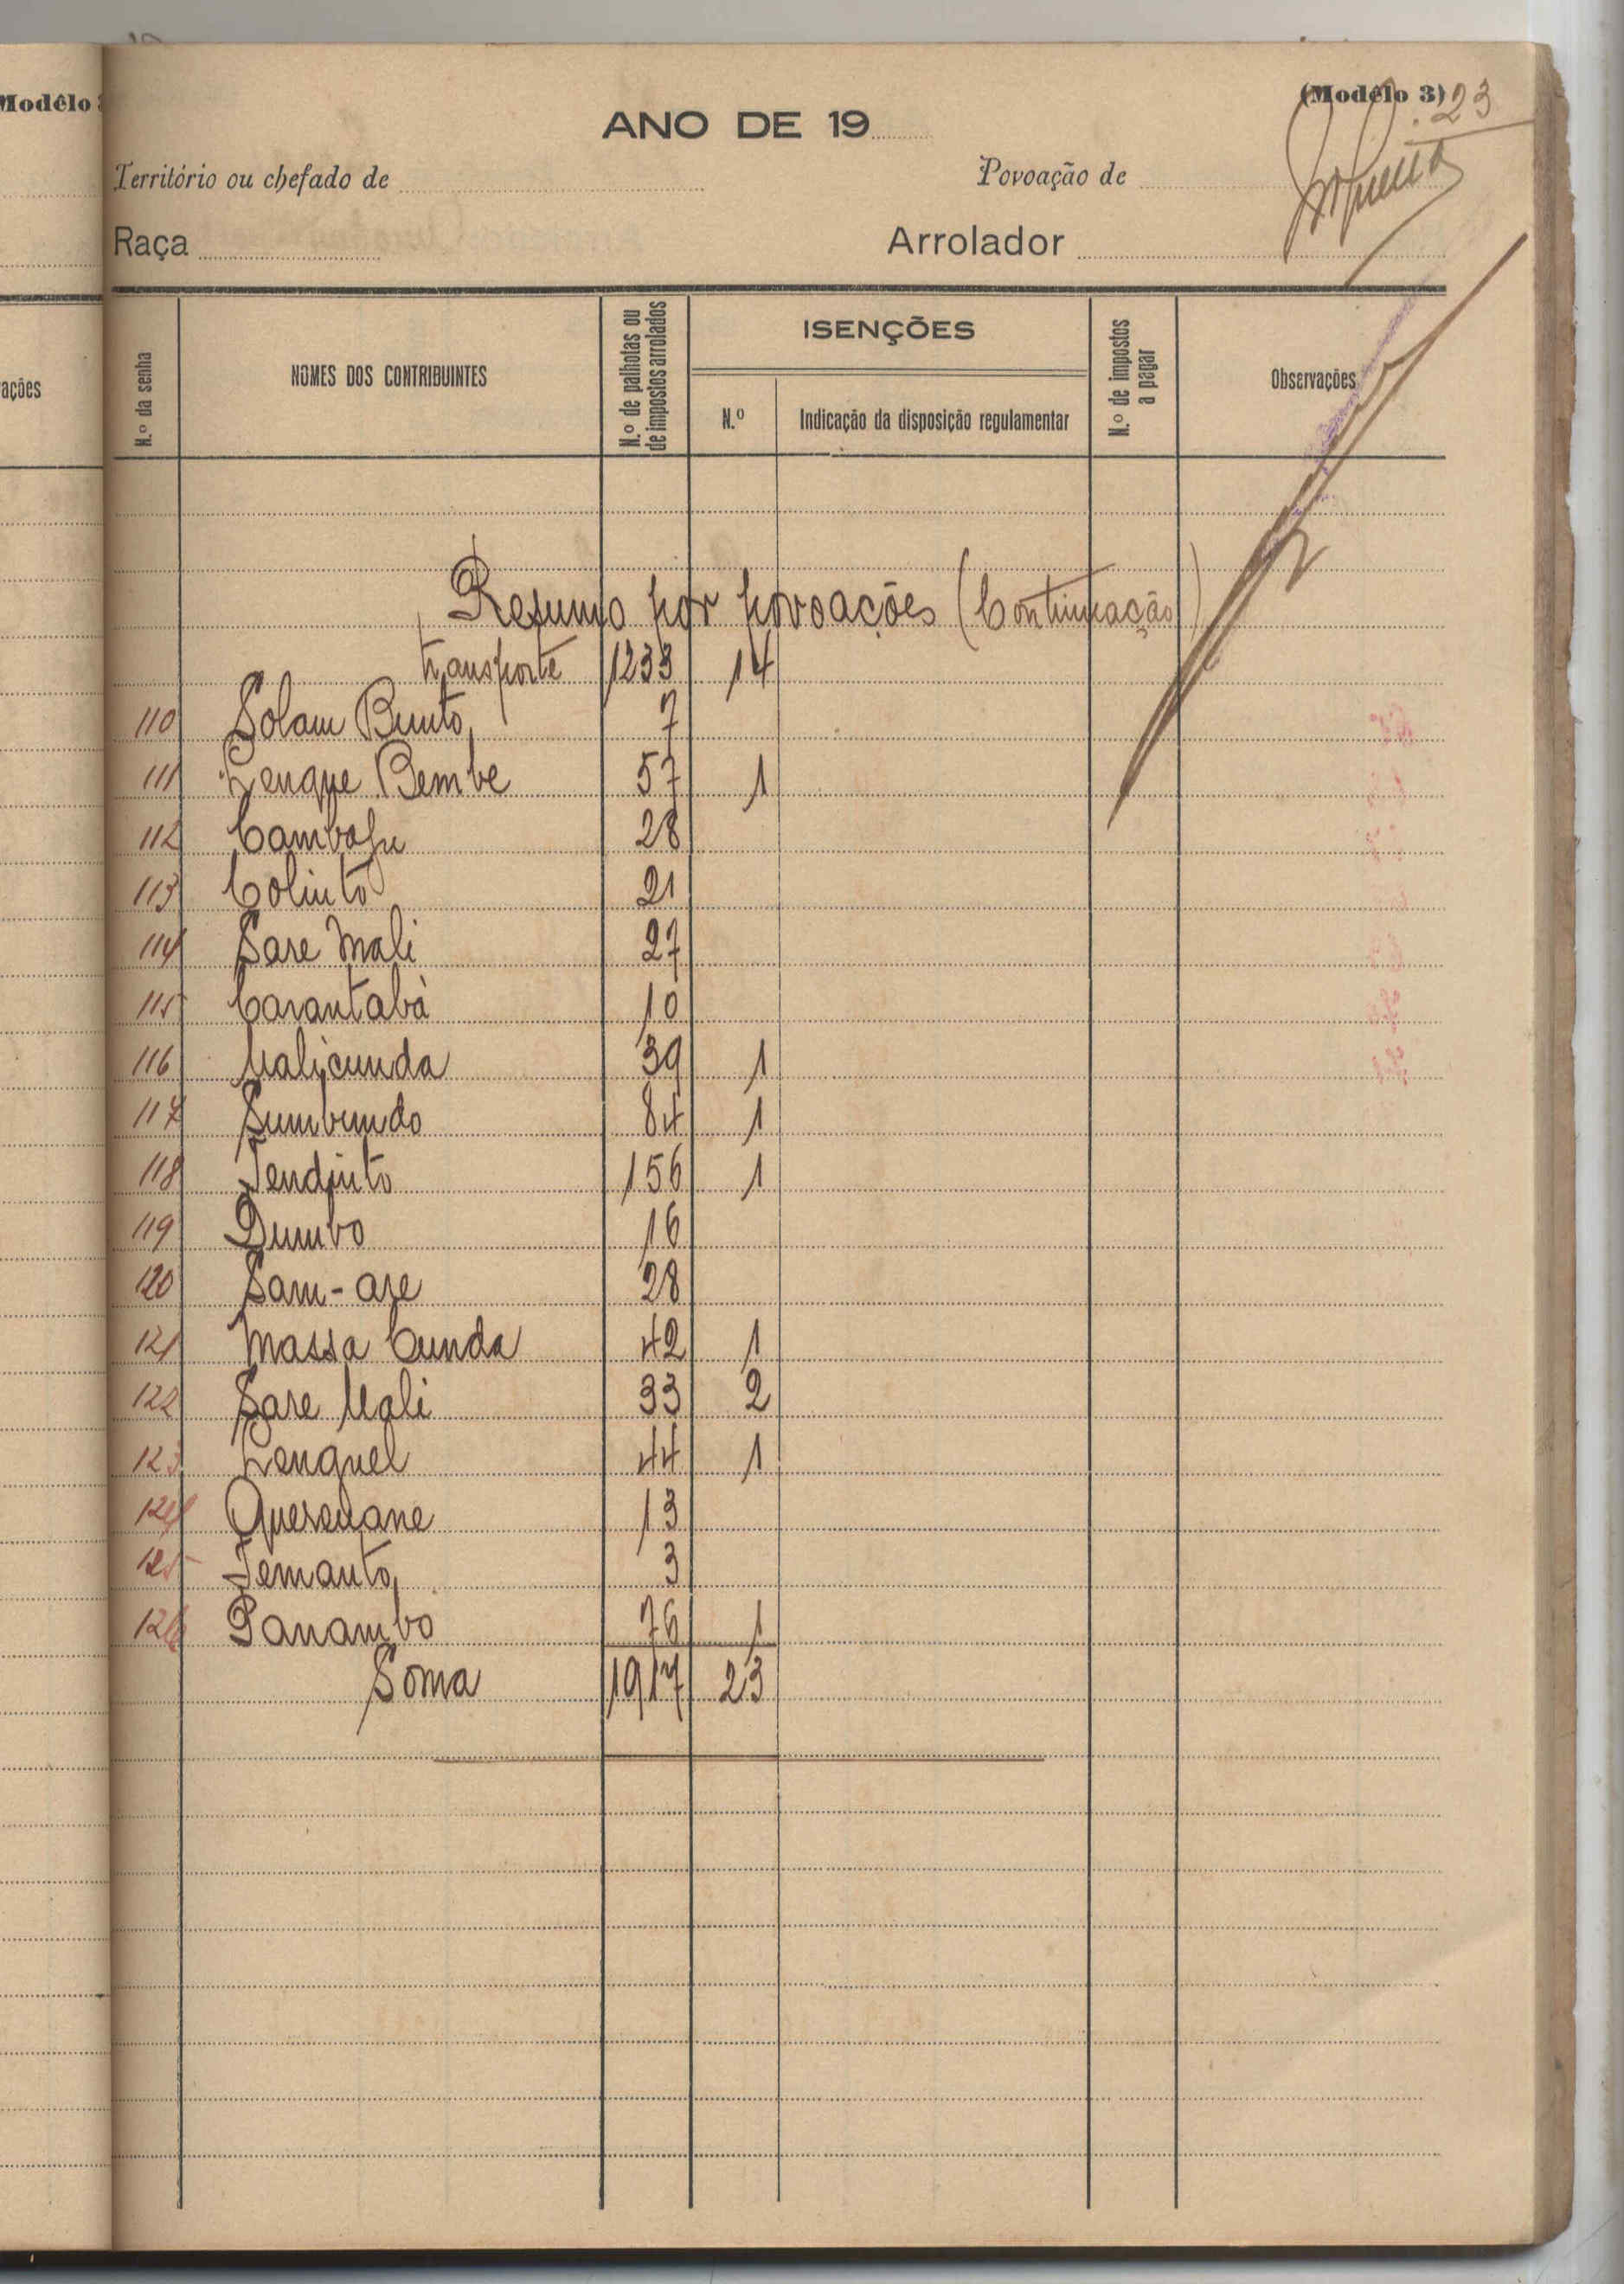 Modêlo
(Modêlo 3) 23
ANO DE 19
Território ou chefado de
Povoação de
Raça
Arrolador
ações
N.º da senha
NOMES DOS CONTRIBUINTES
N.º de palhotas ou de impostos arrolados
ISENÇÕES
N.º
Indicação da disposição regulamentar
N.º de impostos a pagar
Observações
Resumo por povoações (Continuação)
transporte 1233 14
110 Solam Bunto 7
111 Lenque Bembe 57 1
112 Cambaju 28
113 Colinto 21
114 Sare Mali 27
115 Carantabà 10
116 Malicunda 39 1
117 Sumbundo 84 1
118 Tendinto 156 1
119 Dumbo 16
120 Sam-are 28
121 Massa Cunda 42 1
122 Sare Uali 33 2
123 Lenquel 44 1
124 Quereuane 13
125 Temanto 3
126 Panambo 76 1
Soma 1917 23